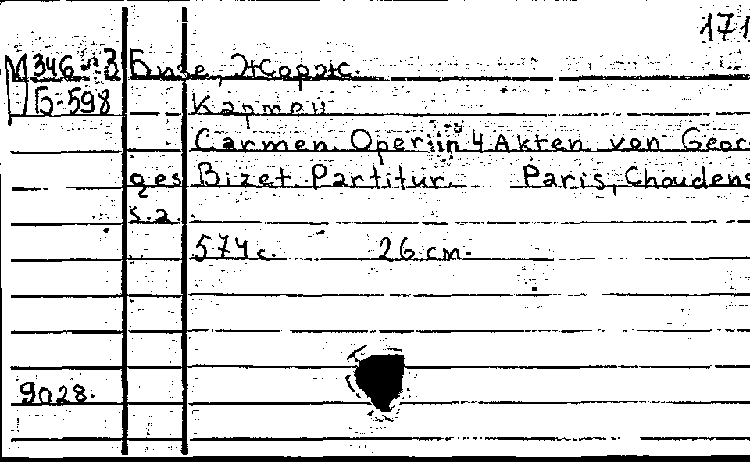 171
М 346-3 Бизе, Жорж.
Б-598 Кармен
Carmen. Oper in 4 Akten von Geor
ges Bizet. Partitur. Paris, Choudens
s.a.
574 с. 26 cm.
9028.